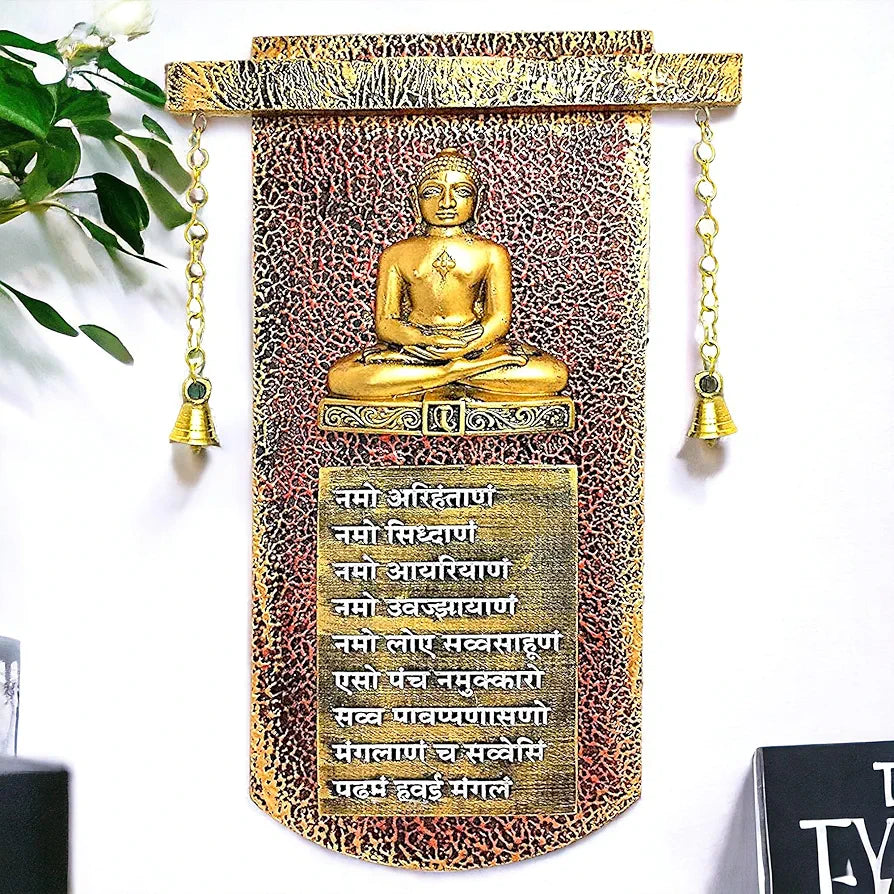 नमो अरिहंताणं
नमो सिध्दाणं
नमो आयरियाणं
नमो उवज्झायाणं
नमो लोए सव्वसाहूणं
एसो पंच नमुक्कारो
सव्व पावप्पणासणो
मंगलाणं च सव्वेसिं
पढमं हवई मंगलं